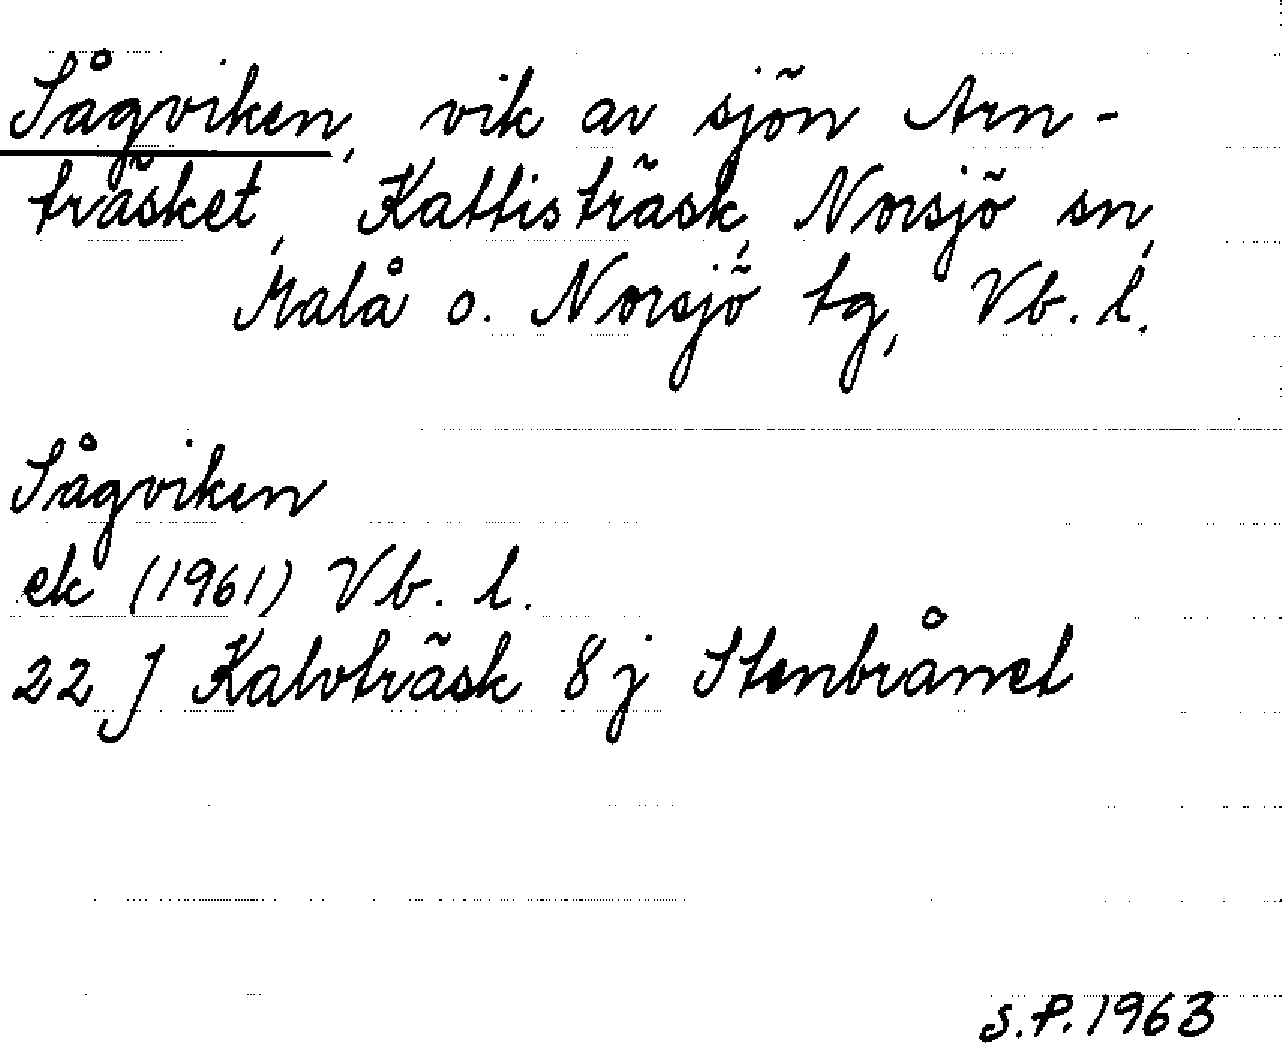 Sågviken, vik av sjön Arn-
träsket, Kattisträsk, Norsjö sn,
Malå o. Norsjö tg, Vb. l.
Sågviken
ek (1961) Vb. l.
22 J Kalvträsk 8 j Stenbrånet
S.P. 1963